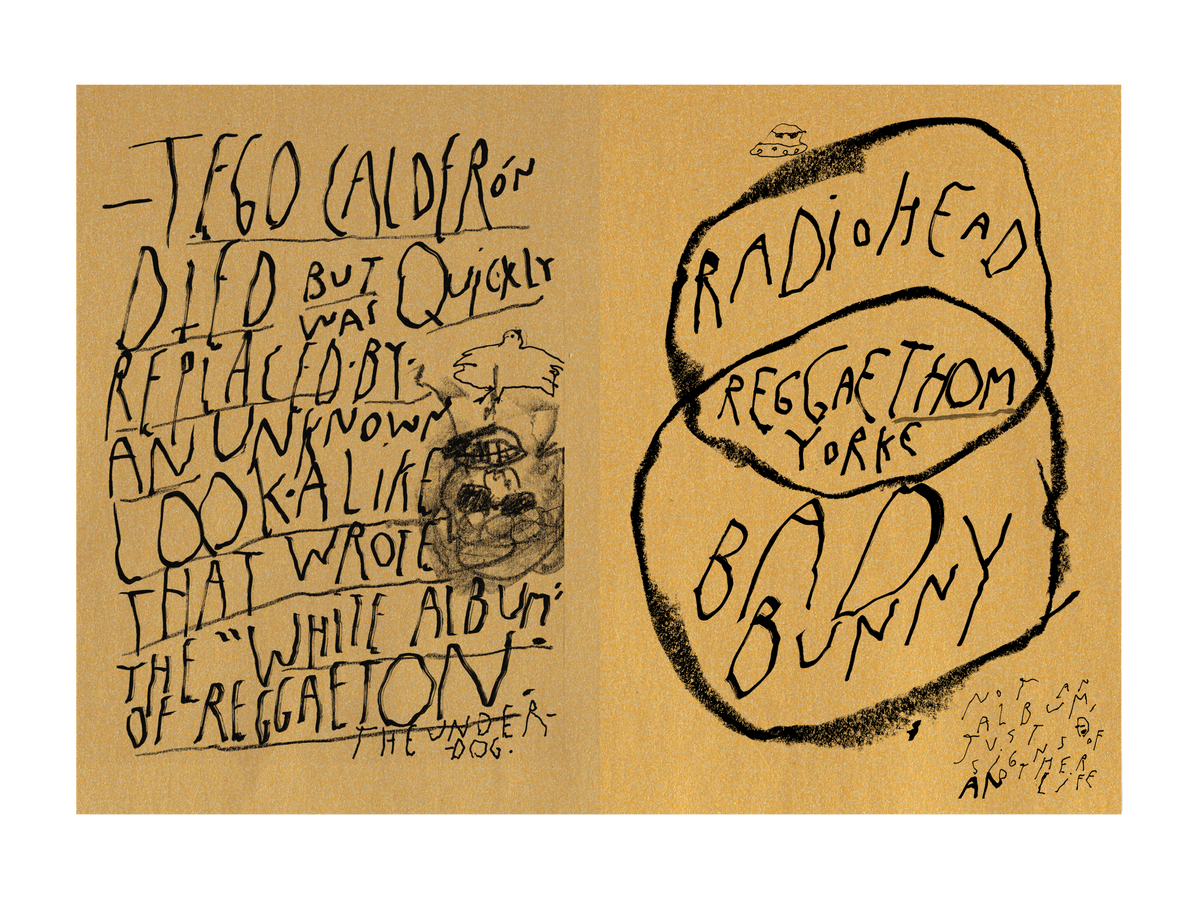 —TEGO CALDERÓN
DIED BUT QUICKLY
WAS
REPLACED·BY·
AN UNKNOWN
LOOK·ALIKE
THAT WROTE
THE "WHITE ALBUM"
OF REGGAETON.
THE UNDER-
DOG.
RADIOHEAD
REGGAETHOM
YORKE
BAD
BUNNY
NOT AN
ALBUM,
JUST
SIGNS OF
ANOTHER
LIFE